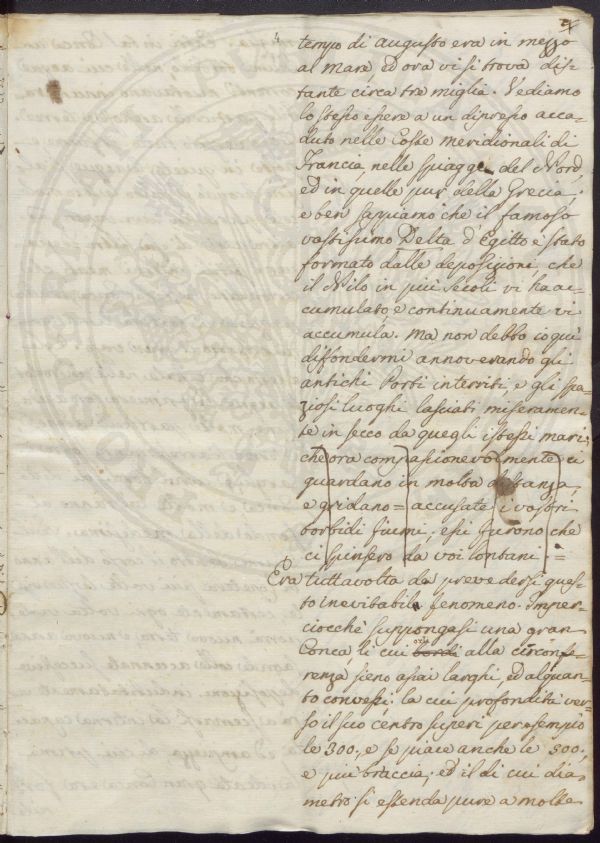 tempo di Augusto era in mezzo
al Mare, ed ora vi si trova dis-
tante circa tre miglia. Vediamo
lo stesso essere a un dipresso acca-
duto nelle Coste meridionali di
Francia, nelle spiagge del Nord
ed in quelle pur della Grecia;
e ben sappiamo che il famoso
vastissimo Delta d'Egitto è stato
formato dalle deposizioni che
il Nilo in più secoli vi ha ac-
cumulato, e continuamente vi
accumula. Ma non debbo io quì
diffondermi annoverando gli
antichi Porti interriti, e gli spa-
ziosi luoghi lasciati miseramen-
te in secco da quegli istessi mari,
che ora compassionevolmente ci
guardano in molta distanza,
e gridano = accusate i vostri
torbidi fiumi; essi furono che
ci spinsero da voi lontani. =
Era tuttavolta da prevedersi ques-
to inevitabile fenomeno. Imper-
ciocchè suppongasi una gran
Conca, li cui bordi alla circonfe-
renza sieno assai larghi, ed alquan-
to convessi: la cui profondità ver-
so il suo centro superi per esempio
le 300, e se piace anche le 500,
e più braccia; ed il di cui dia-
metro si estenda pure a molte